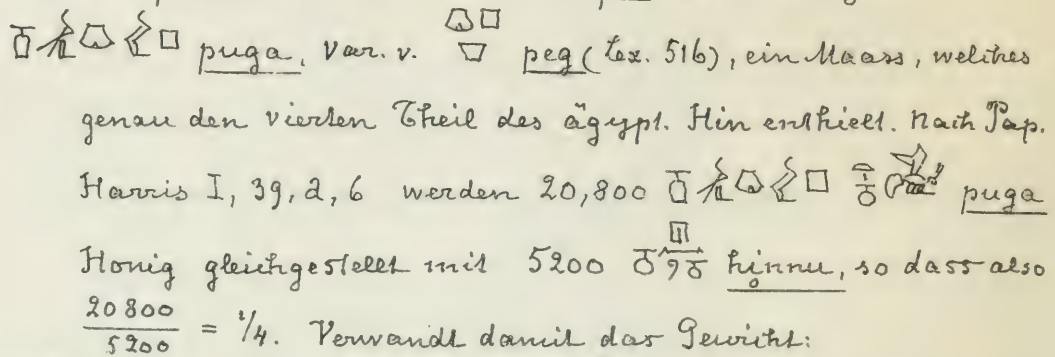 puga, Var. v. peg (Lex. 516), ein Maass, welches
genau den vierten Theil des ägypt. Hin enthielt. Nach Pap.
Harris I, 39, a, 6 werden 20,800 puga
Honig gleichgestellt mit 5200 hinnu, so dass also
20800/5200 = 1/4. Verwandt damit das Gewicht: